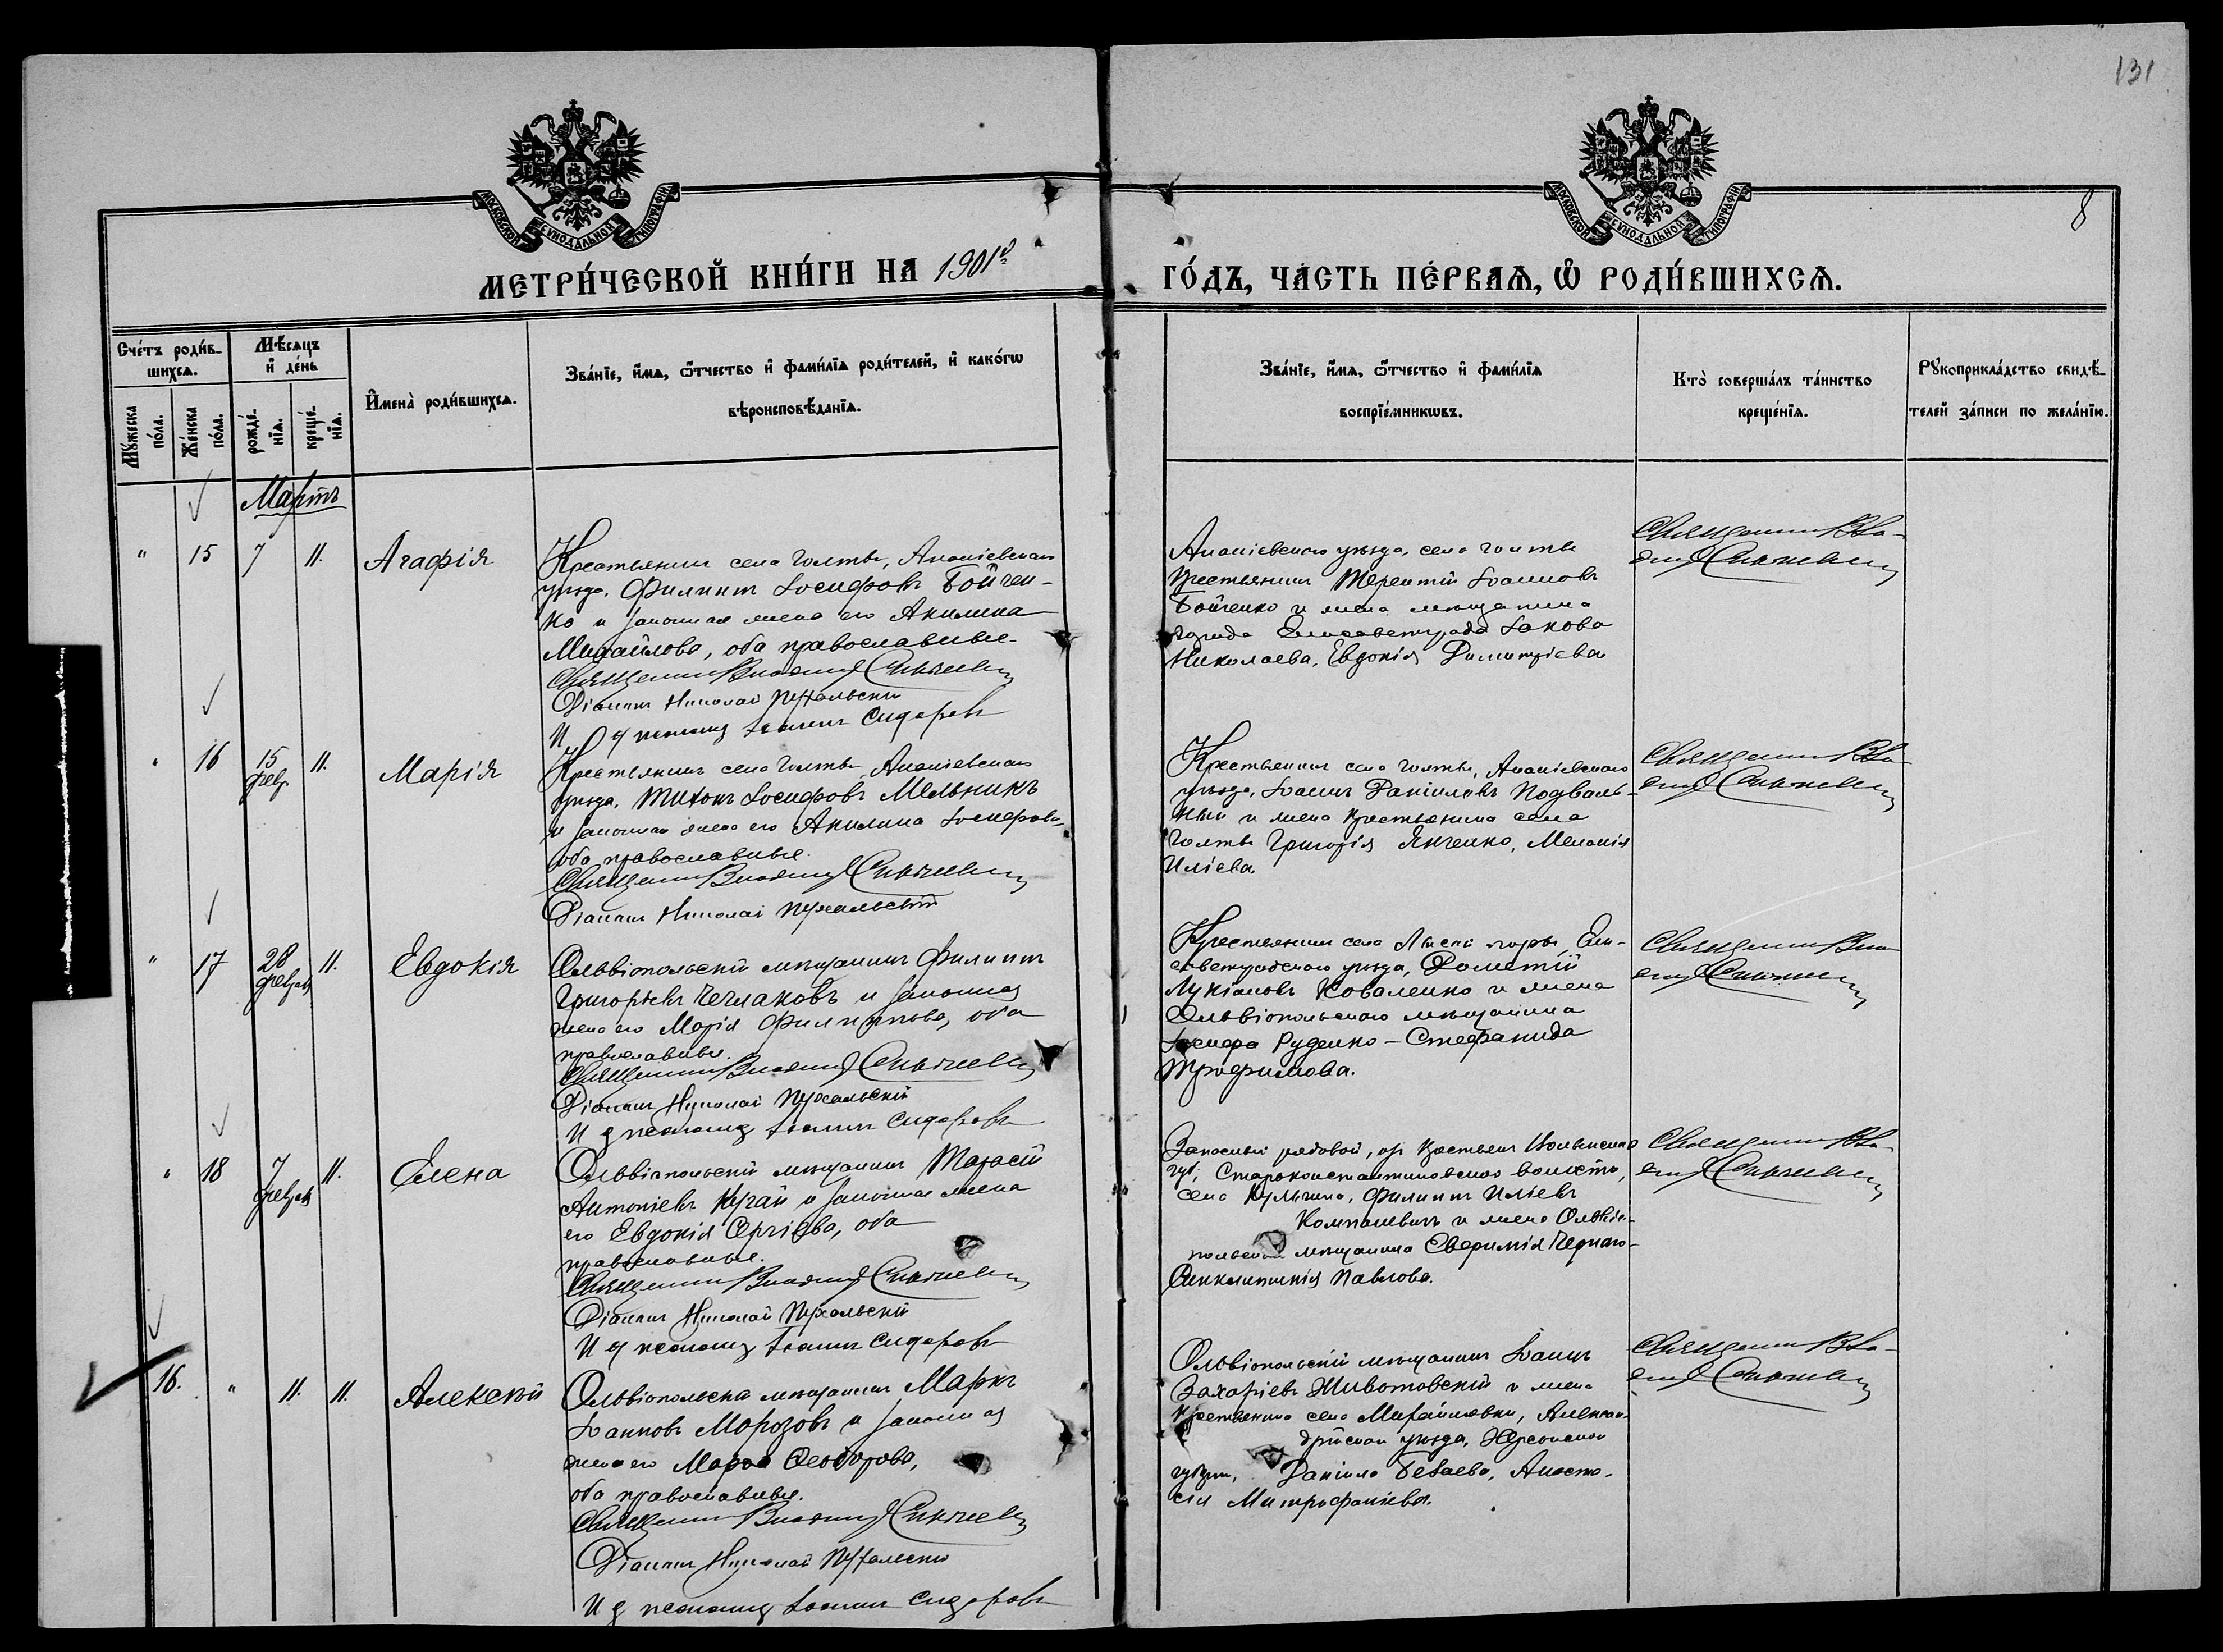 131
8
МОСКОВСКОЙ СѴНОДАЛЬНОЙ ТИПОГРАФІИ
МОСКОВСКОЙ СѴНОДАЛЬНОЙ ТИПОГРАФІИ
МЕТРИ́ЧЕСКОЙ КНИ́ГИ НА 1901й
ГО́ДЪ, ЧА́СТЬ ПЕ́РВАѦ, Ѿ РОДИ́ВШИХСѦ.
Сче́тъ роди́в-
шихсѧ.
Мꙋ́жеска по́ла.
Же́нска по́ла.
Мѣ́сяцъ
и҆ де́нь
рожде́-
нїѧ.
креще́-
нїѧ.
И҆мена̀ роди́вшихсѧ.
Зва́нїе, и҆́мѧ, ѻ҆́тчество и҆ фами́лїѧ роди́телей, и҆ како́гѡ
вѣроисповѣ́данїѧ.
Зва́нїе, и҆́мѧ, ѻ҆́тчество и҆ фами́лїѧ
воспрїе́мникѡвъ.
Кто̀ соверша́лъ та́инство
креще́нїѧ.
Рꙋкоприкла́дство свидѣ́-
телей за́писи по жела́нїю.
Мартъ
" 15 7 11. Агафія
Крестьянинъ села Голты, Ананіевскаго
уѣзда, Филиппъ Іосифовъ Бойчен-
ко и законная жена его Акилина
Михайлова, оба православные.
Священникъ
Діаконъ Николай Пухальскій
И д псаломщ Іоаннъ Сидоровъ
Ананіевскаго уѣзда, села Голты
крестьянинъ Терентій Іоанновъ
Бойченко и жена мѣщанина
города Елисаветграда Іакова
Николаева, Евдокія Димитріева
Священникъ Вла-
" 16 15 февр. 11. Марія
Крестьянинъ села Голты, Ананіевскаго
уѣзда, Тихонъ Іосифовъ Мельникъ
и законная жена его Акилина Іосифова,
оба православные.
Священникъ
Діаконъ Николай Пухальскій
Крестьянинъ села Голты, Ананіевскаго
уѣзда, Іоаннъ Даніиловъ Подваль-
ный и жена крестьянина села
Голты Григорія Янченко, Меланія
Иліева
Священникъ Вла-
" 17 28 февраля 11. Евдокія
Ольвіопольскій мѣщанинъ Филиппъ
Григорьевъ Чечлаковъ и законная
жена его Марія Филиппова, оба
православные.
Священникъ
Діаконъ Николай Пухальскій
И д псаломщ Іоаннъ Сидоровъ
Крестьянинъ села Лысой горы, Ели-
саветградскаго уѣзда, Дометій
Лукіановъ Коваленко и жена
Ольвіопольскаго мѣщанина
Іосифа Руденко - Стефанида
Трофимова.
Священникъ
" 18 7 февраля 11. Елена
Ольвіопольскій мѣщанинъ Тарасій
Антоніевъ и законная жена
его Евдокія Сергіева, оба
православные.
Священникъ
Діаконъ Николай Пухальскій
И д псаломщ Іоаннъ Сидоровъ
Запасный рядовой, изъ крестьянъ Волынской
губ., Староконстантиновской волости,
села Кульчина, Филиппъ Иліевъ
и жена Ольвіо-
польскаго мѣщанина
Синклитикія Павлова.
Священникъ Вла-
16. " 11. 11. Алексѣй
Ольвіопольскій мѣщанинъ Маркъ
Іоанновъ Морозовъ и законная
жена его Марѳа Ѳеодорова,
оба православные.
Священникъ
Діаконъ Николай Пухальскій
И д псаломщ Іоаннъ Сидоровъ
Ольвіопольскій мѣщанинъ Іоаннъ
Захаріевъ Животовскій и жена
крестьянина села Михайловки, Алексан-
дрійскаго уѣзда, Херсонской
губерн., Даніила Анаста-
сія Митрофаніева.
Священникъ Вла-